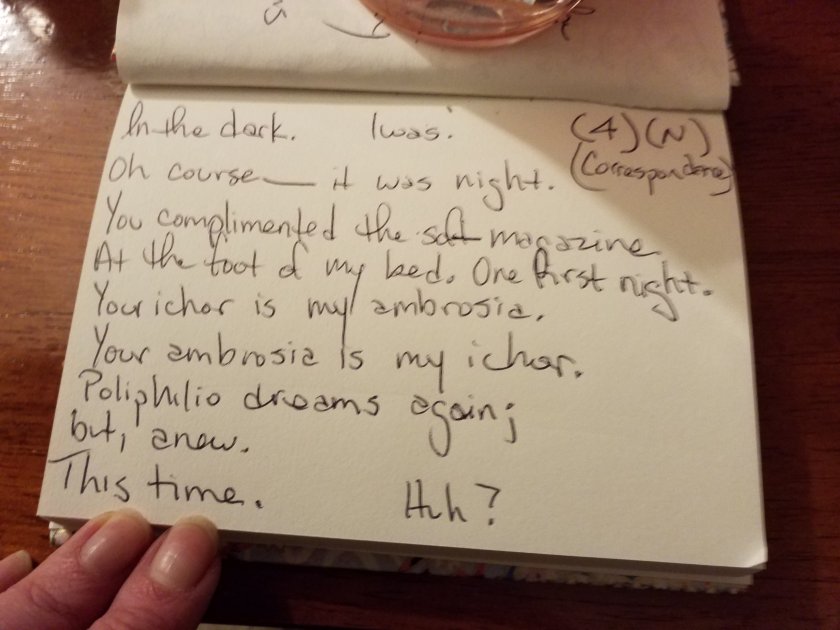 In the dark. I was. (4)(N)
Oh course— it was night. (Correspondence)
You complimented the salt magazine.
At the foot of my bed. One first night.
Your ichor is my ambrosia.
Your ambrosia is my ichor.
Poliphilio dreams again;
but, anew.
This time. Huh?